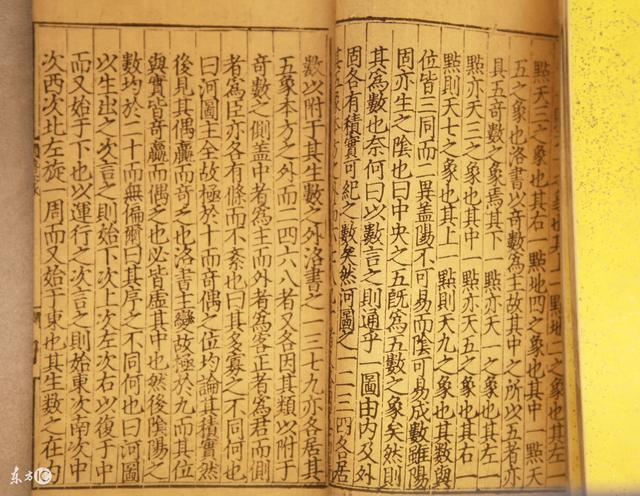 之象也其上一點地二之象也其左
點天三之象也其右一點地四之象也其中一點天
五之象也洛書以奇數為主故其中之所以五者亦
具五奇數之象焉其下一點亦天一之象也其左一
點亦天三之象也其中一點亦天五之象也其右一
點則天七之象也其上一點則天九之象也其數與
位皆三同而二異蓋陽不可易而陰可易成數雖陽
固亦生之陰也曰中央之五既為五數之象矣然則
其為數也奈何曰以數言之則通乎一圖由内及外
固各有積實可紀之數矣然河圖之一二三四各居
數以附于其生數之外洛書之一三七九亦各居其
五象本方之外而二四六八者又各因其類以附于
奇數之側盖中者為主而外者為客正者為君而側
者為臣亦各有條而不紊也曰其多寡之不同何也
曰河圖主全故極於十而奇偶之位均論其積實然
後見其偶贏而奇乏也洛書主變故極於九而其位
與實皆奇贏而偶乏也必皆虛其中也然後陰陽之
數均於二十而無偏爾曰其序之不同何也曰河圖
以生出之次言之則始下次上次左次右以復于中
而又始于下也以運行之次言之則始東次南次中
次西次北左旋一周而又始于東也其生數之在内
东方IC